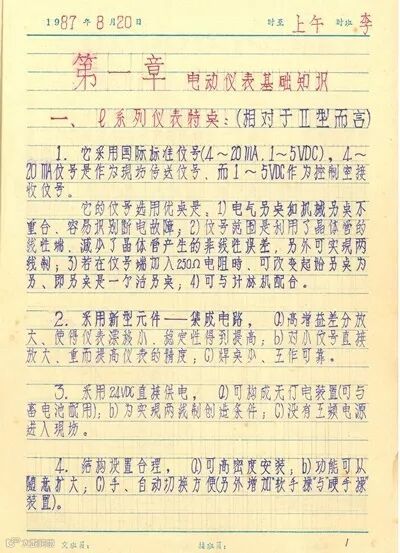 1987年8月20日 时至 上午 时班 李
第一章 电动仪表基础知识
一、ℓ系列仪表特点:(相对于Ⅱ型而言)
1. 它采用国际标准仪号(4~20MA.1~5VDC),4~
20MA仪号是作为现场传送仪号、而1~5VDC作为控制室接
收仪号。
它的仪号选用优点是:1)电气另点和机械另点不
重合、容易识别断电故障;2)仪号范围是利用了晶体管的
线性端、减少了晶体管产生的非线性误差,另外可实现两
线制;3)若在仪号端加入250Ω电阻时、可改变起始另点为
另、即另点是一个活另点;4)可与计算机配合。
2. 采用新型元件——集成电路, a)高增益差分放
大、使得仪表漂移小、稳定性得到提高;b)对小仪号直接
放大、重而提高仪表的精度;C)焊点少、工作可靠。
3. 采用24VDC直接供电, a)可构成无仃电装置(可与
畜电池配用);b)为实现两线制创造条件;C)没有工频电源
进入现场。
4. 结构设置合理, a)可高密度安装;b)功能可以
随意扩大;C)手、自动切换方便(另外增加"软手操"与"硬手操"
装置)。
交班员: 接班员: 1